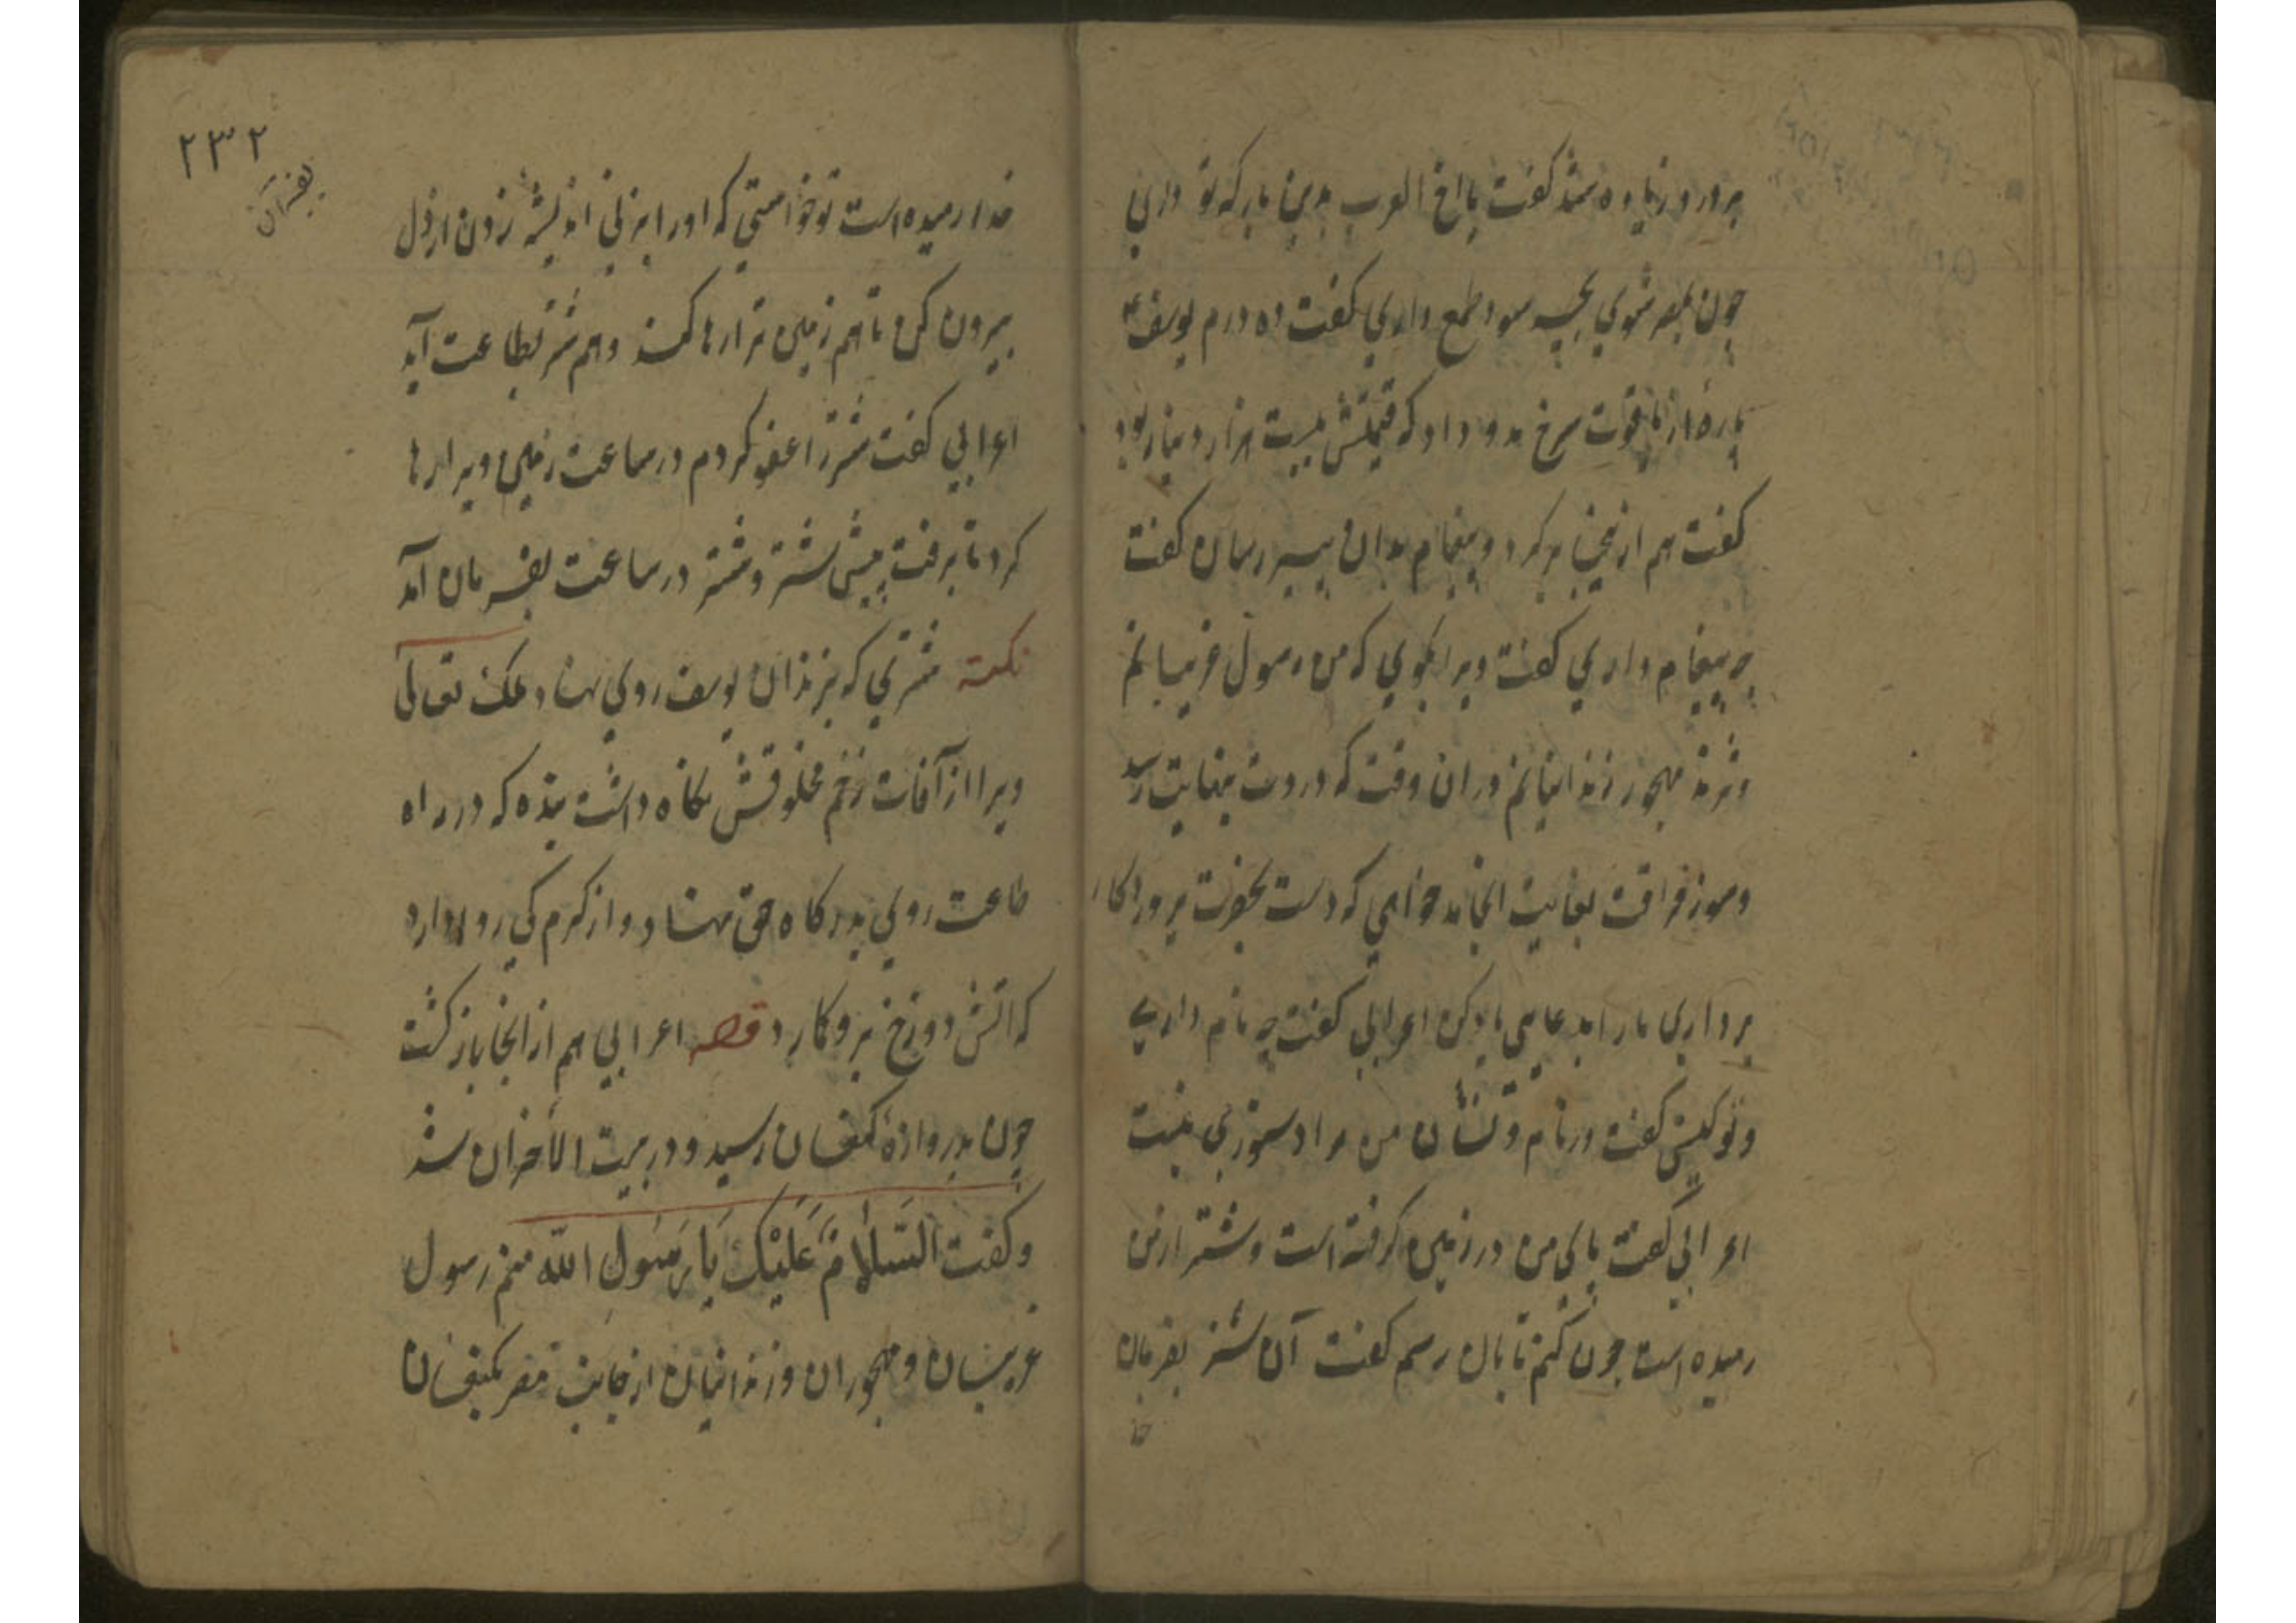 بر درد زیاده شد گفت یا اخ العرب بدین بار که تو داری
چون بمصر شوی بچه سود طمع داری گفت ده درم یوسف ع
پارهٔ از یاقوت سرخ بدو داد که قیمتش بیست هزار دینار بود
گفت هم از ینجا بر کرد و پیغام بدان پیر رسان گفت
چه پیغام داری گفت ویرا بگوی که من رسول غریبانم
مهجور زندانیانم دران وقت که دردت بغایت رسد
وسوز فراقت بغایت انجامد خواهی که دست بحضرت پروردگار
برداری مارا بدعایی یاد کن اعرابی گفت چه نام داری
وتو کیستی گفت در نام و نشان من مرا دستوری نیست
اعرابی گفت پای من در زمین گرفته است و شتر از من
رمیده است چون کنم تا بان رسم گفت آن شتر بفرمان
خدا
۲۳۲
بفرمان
خدا رمیده است تو خواستی که او را برنی اندیشه زدن از دل
بیرون کن تا هم زمین ترا رها کند و هم شتر بطاعت آید
اعرابی گفت شتر را عفو کردم در ساعت زمین ویرا رها
کرد تا برفت پیش شتر و شتر در ساعت بفرمان آمد
نکته شتری که بزندان یوسف روی نهاد ملک تعالی
ویرا از آفات زخم مخلوقش نگاه داشت بنده که در راه
طاعت روی بدرگاه حق نهاد و از کرم کی روا دارد
که آتش دوزخ برو گمارد قصه اعرابی هم از انجا باز گشت
چون بدروازهٔ کنعان رسید و در بیت الأحزان شد
وگفت السَّلامُ عَلَیْکَ یَا رَسُولَ اللّه منم رسول
غریبان و مهجوران و زندانیان از جانب مصر بکنعان